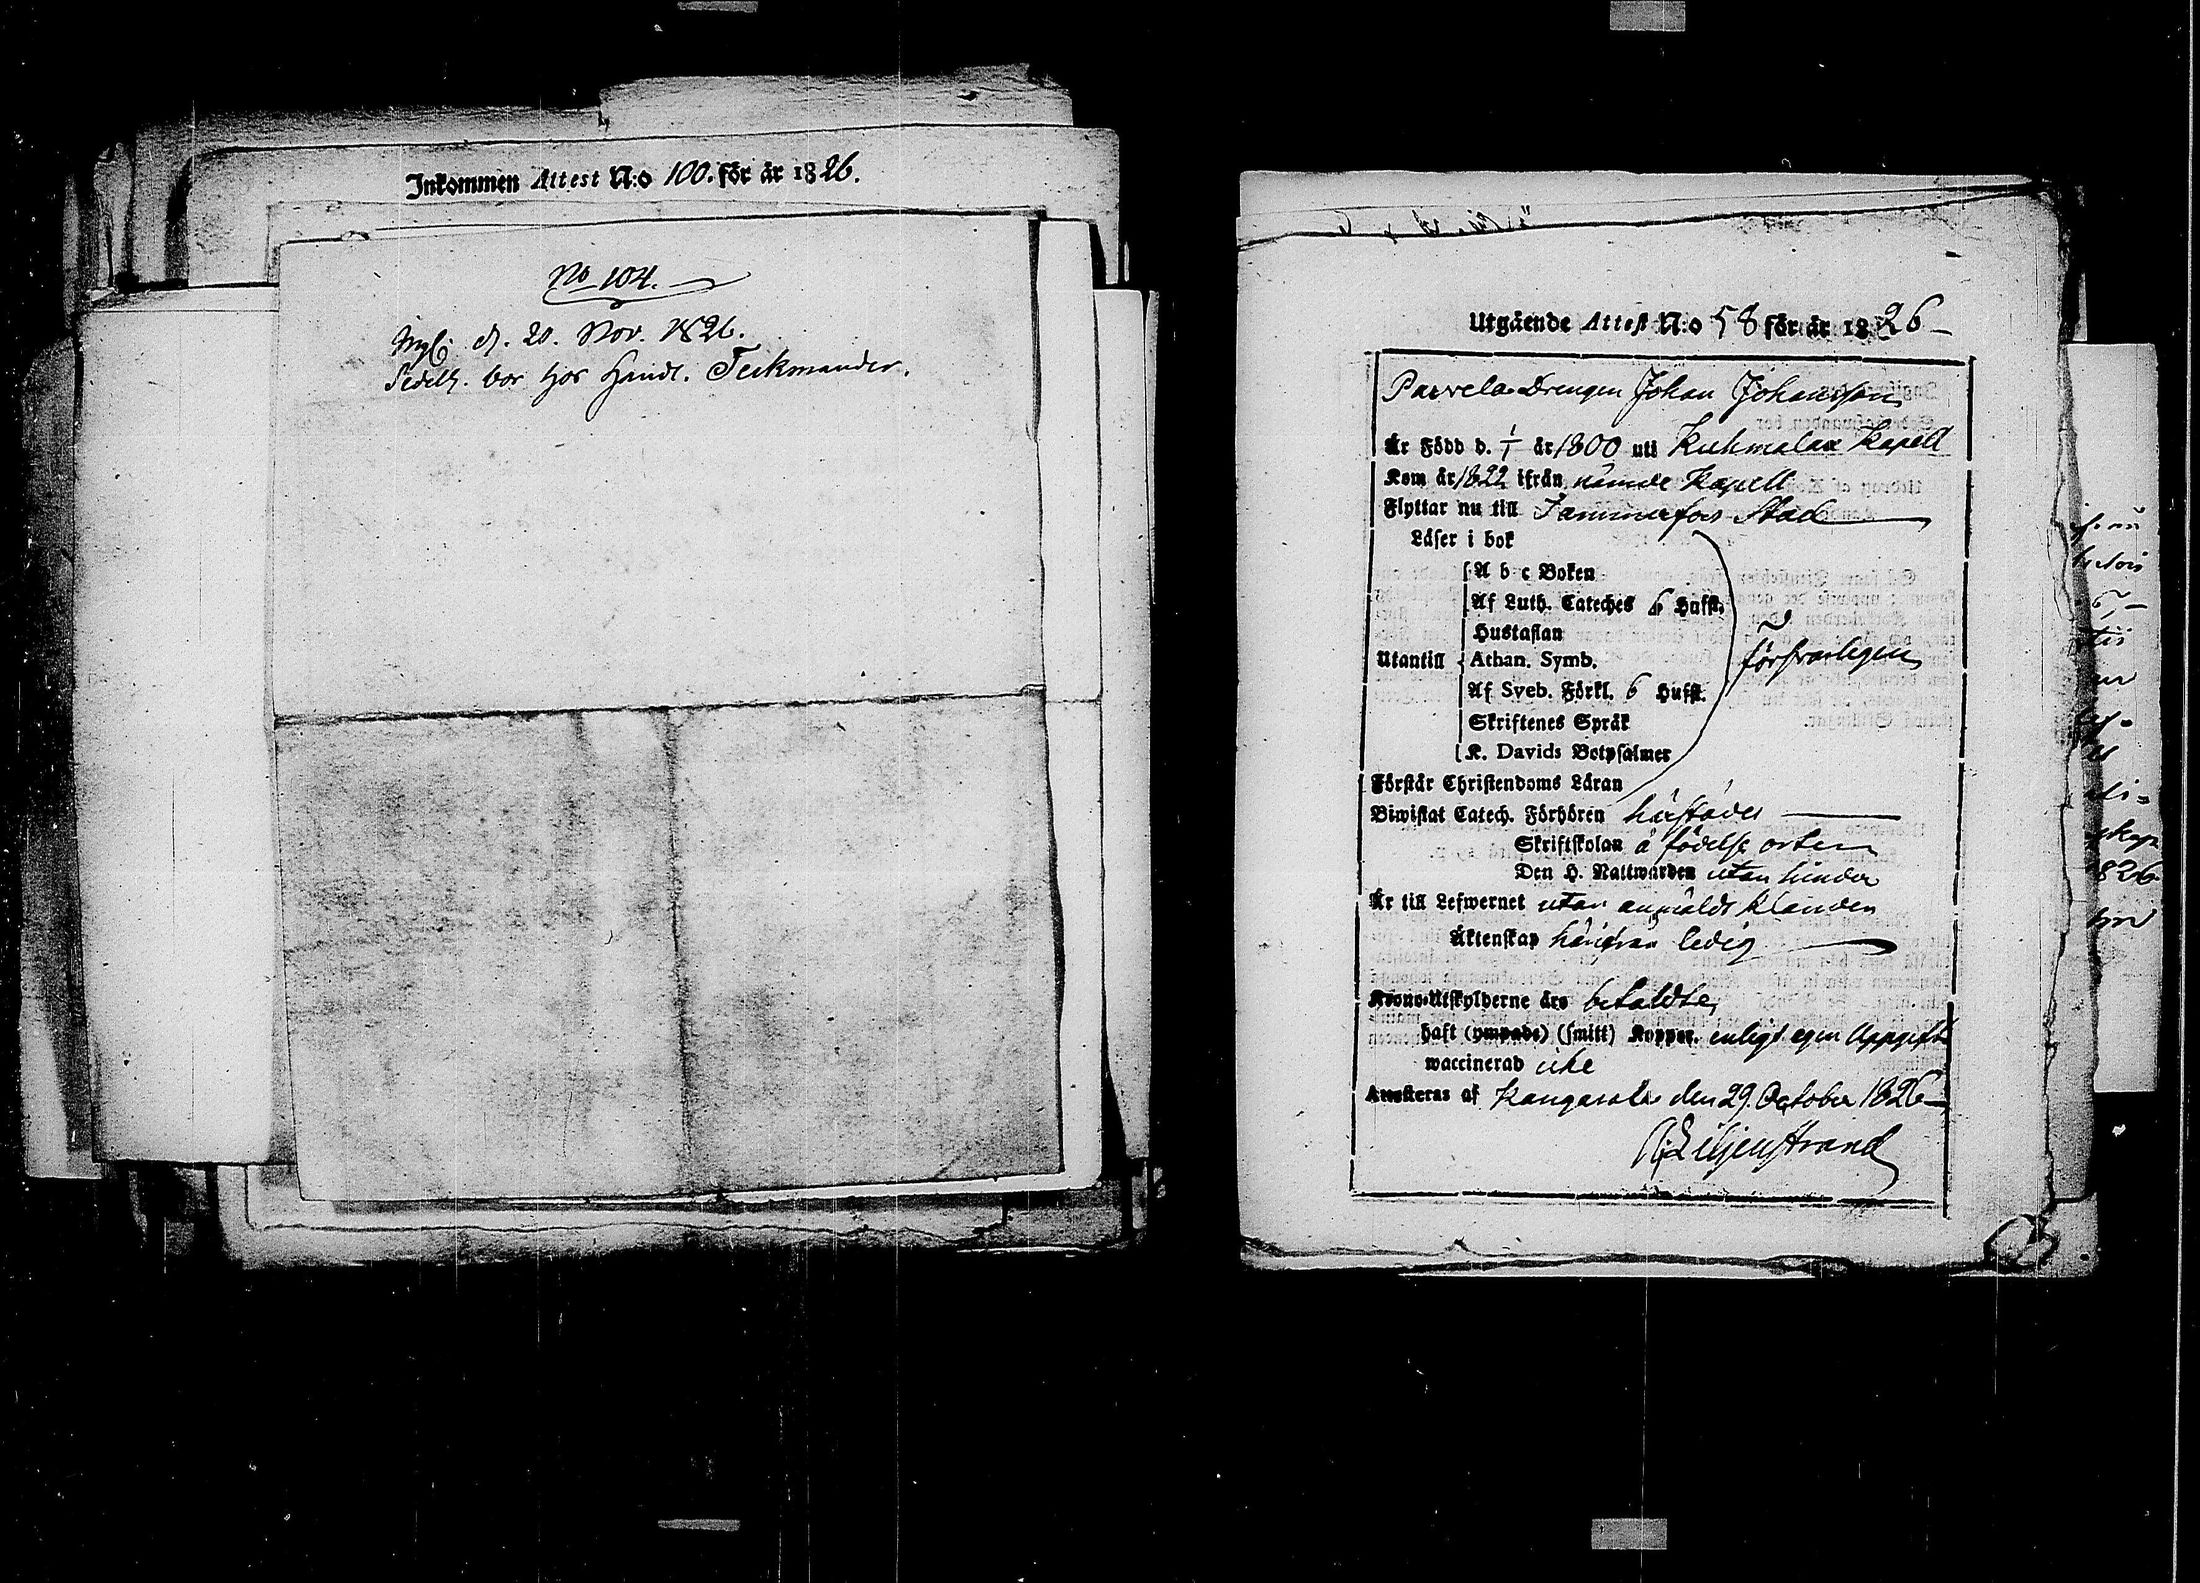 Inkommen Attest N:o 100. för år 1826.
No 104.
d. 20. Nov. 1826.
Sedelh. bor hos Handl. Teckmander.
Utgående Attest N:o 58 för år 1826
Parvela Drengen Johan Johansson
Är Född d. 1/1 år 1800 uti Kuhmalax Kapell
Kom år 1822 ifrån nämde Kapell
Flyttar nu till Tammerfors Stad
Läser i bok
A b c Boken
Af Luth. Cateches 6 Hufst.
Hustaflan
Utantill Athan. Symb. försvarligen
Af Sveb. Förkl. 6 Hufst.
Skriftenes Språk
K. Davids Botpsalmer
Förstår Christendoms Läran
Biwistat Catech. Förhören härstädes
Skriftskolan å födelse orten
Den H. Nattwarden utan hinder
Är till Lefwernet utan anmäldt klander
Äktenskap härifrån ledig
Krono-Utskylderne äro betaldte,
haft (ympade) (smitt) Koppor. enligt egen Uppgift
waccinerad icke
Attesteras af Kangasala den 29. October 1826
Liljenstrand
1826